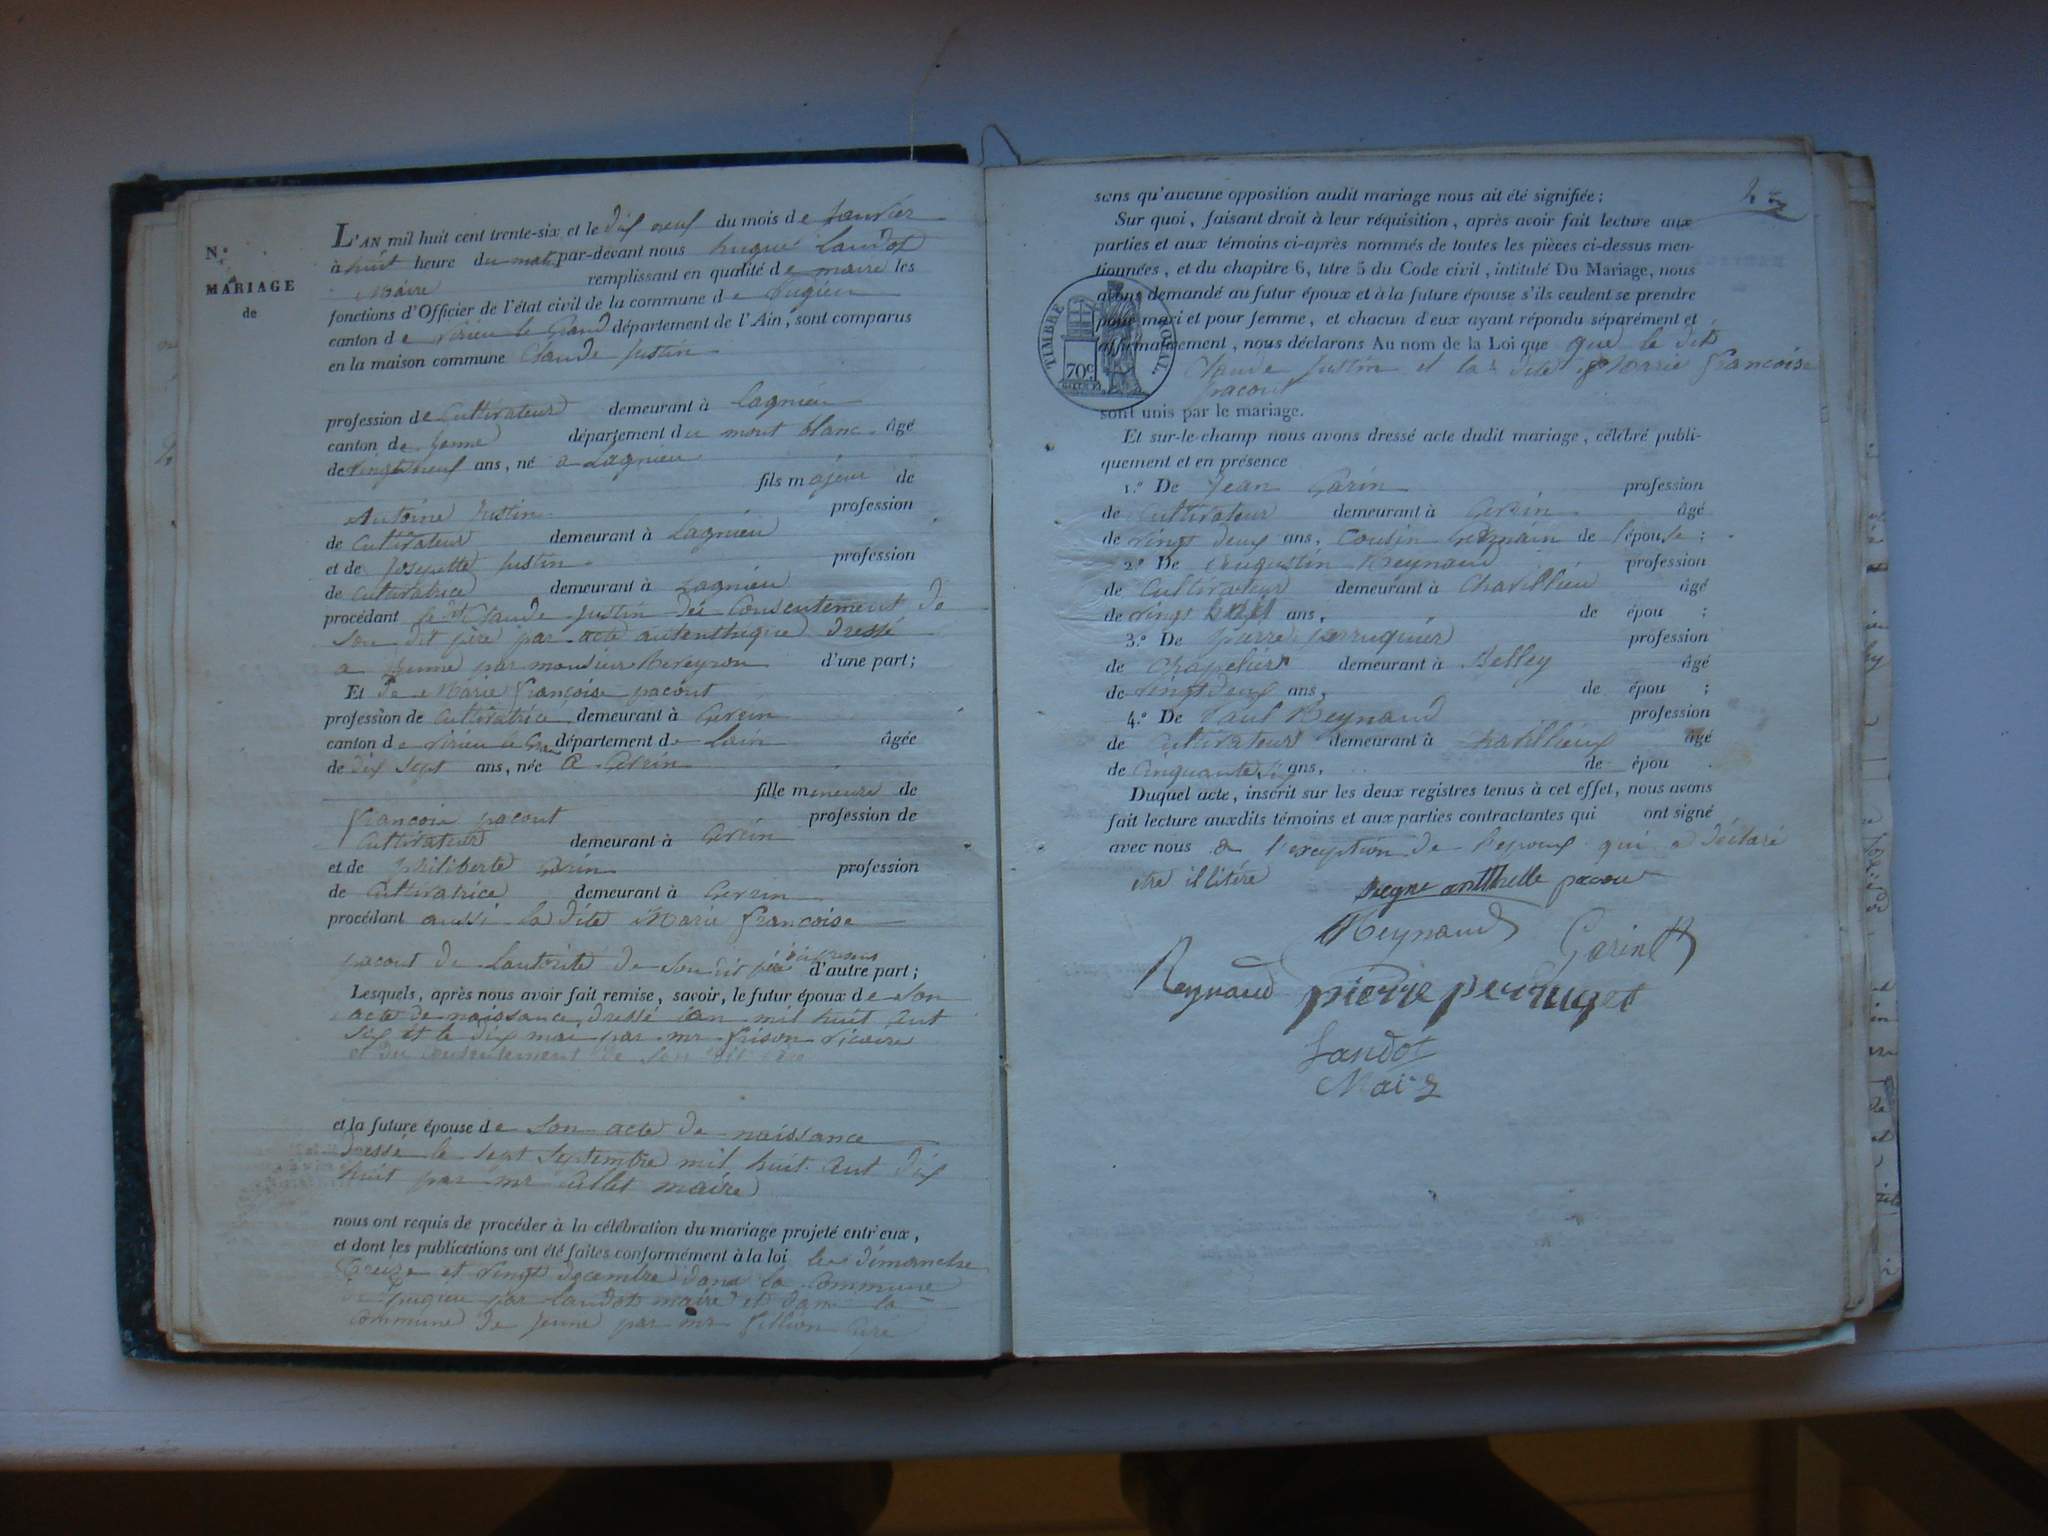 N.°
MARIAGE
de
L'AN mil huit cent trente-six et le dix neuf du mois de Janvier
à huit heure du matin par-devant nous hugue Landot
Maire remplissant en qualité de maire les
fonctions d'Officier de l'état civil de la commune de Pugieu
canton de Virieu le Grand département de l'Ain, sont comparus
en la maison commune Claude Justin
profession de Cultivateur demeurant à Lagnieu
canton de Jenne département du mont blanc âgé
de vingt neuf ans, né a Lagnieu
fils majeur de
Antoine Justin profession
de Cultivateur demeurant à Lagnieu
et de Josepette Justin profession
de Cultivatrice demeurant à Lagnieu
procédant le dit Claude Justin du Consentement de
Son dit père par acte autenthique dressé
a Jenne par monsieur Reveyron d'une part;
Et de Marie françoise pacout
profession de Cultivatrice demeurant à Cerrin
canton de Virieu le Grand département de Lain âgée
de dix sept ans, née à Cerrin
fille mineure de
françois pacout profession de
Cultivateur demeurant à Cerrin
et de philiberte Garin profession
de Cultivatrice demeurant à Cerrin
procédant aussi la dite Marie françoise
pacout de Lautorité de Son dit père ici présent d'autre part;
Lesquels, après nous avoir fait remise, savoir, le futur époux de Son
acte de naissance dressé lan mil huit Cent
Six et le dix mai par mr frison vicaire
et du consentement de Son dit père
et la future épouse de Son acte de naissance
dressé le sept Septembre mil huit Cent dix
huit par mr Collet maire
nous ont requis de procéder à la célébration du mariage projeté entr'eux,
et dont les publications ont été faites conformément à la loi les dimanche
treize et vingt decembre dans la Commune
de pugieu par Landot maire et dans la
Commune de Jenne par mr fillion Curé
sans qu'aucune opposition audit mariage nous ait été signifiée;
Sur quoi, faisant droit à leur réquisition, après avoir fait lecture aux
parties et aux témoins ci-après nommés de toutes les pièces ci-dessus men-
tionnées, et du chapitre 6, titre 5 du Code civil, intitulé Du Mariage, nous
avons demandé au futur époux et à la future épouse s'ils veulent se prendre
pour mari et pour femme, et chacun d'eux ayant répondu séparément et
affirmativement, nous déclarons Au nom de la Loi que que le dit
TIMBRE ROYAL.
70c
Claude Justin et la dite Marie françoise
pacout
sont unis par le mariage.
Et sur-le-champ nous avons dressé acte dudit mariage, célébré publi-
quement et en présence
1.° De Jean Garin profession
de Cultivateur demeurant à Cerrin âgé
de vingt deux ans, Cousin Germain de l'épouse;
2.° De Augustin Reynaud profession
de Cultivateur demeurant à Chavillieu âgé
de vingt huit ans, de épou ;
3.° De pierre perruquier profession
de Chapelier demeurant à Belley âgé
de vingt deux ans, de épou ;
4.° De Paul Reynaud profession
de Cultivateur demeurant à chavillieux âgé
de Cinquante Six ans, de épou .
Duquel acte, inscrit sur les deux registres tenus à cet effet, nous avons
fait lecture auxdits témoins et aux parties contractantes qui ont signé
avec nous a l'exception de l'epoux qui a déclaré
être illitéré
pacou
Reynaud
Garin
Reynaud pierre perruquet
Landot
Maire